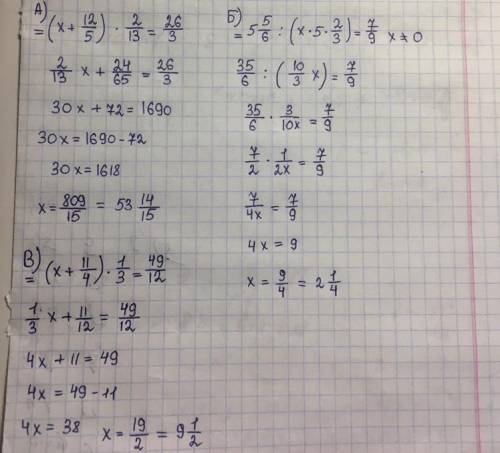 А)
= (x + 12/5) · 2/13 = 26/3
2/13 x + 24/65 = 26/3
30x + 72 = 1690
30x = 1690 - 72
30x = 1618
x = 809/15 = 53 14/15
В)
= (x + 11/4) · 1/3 = 49/12
1/3 x + 11/12 = 49/12
4x + 11 = 49
4x = 49 - 11
4x = 38 x = 19/2 = 9 1/2
Б)
= 5 5/6 : (x · 5 · 2/3) = 7/9 x ≠ 0
35/6 : (10/3 x) = 7/9
35/6 · 3/10x = 7/9
7/2 · 1/2x = 7/9
7/4x = 7/9
4x = 9
x = 9/4 = 2 1/4